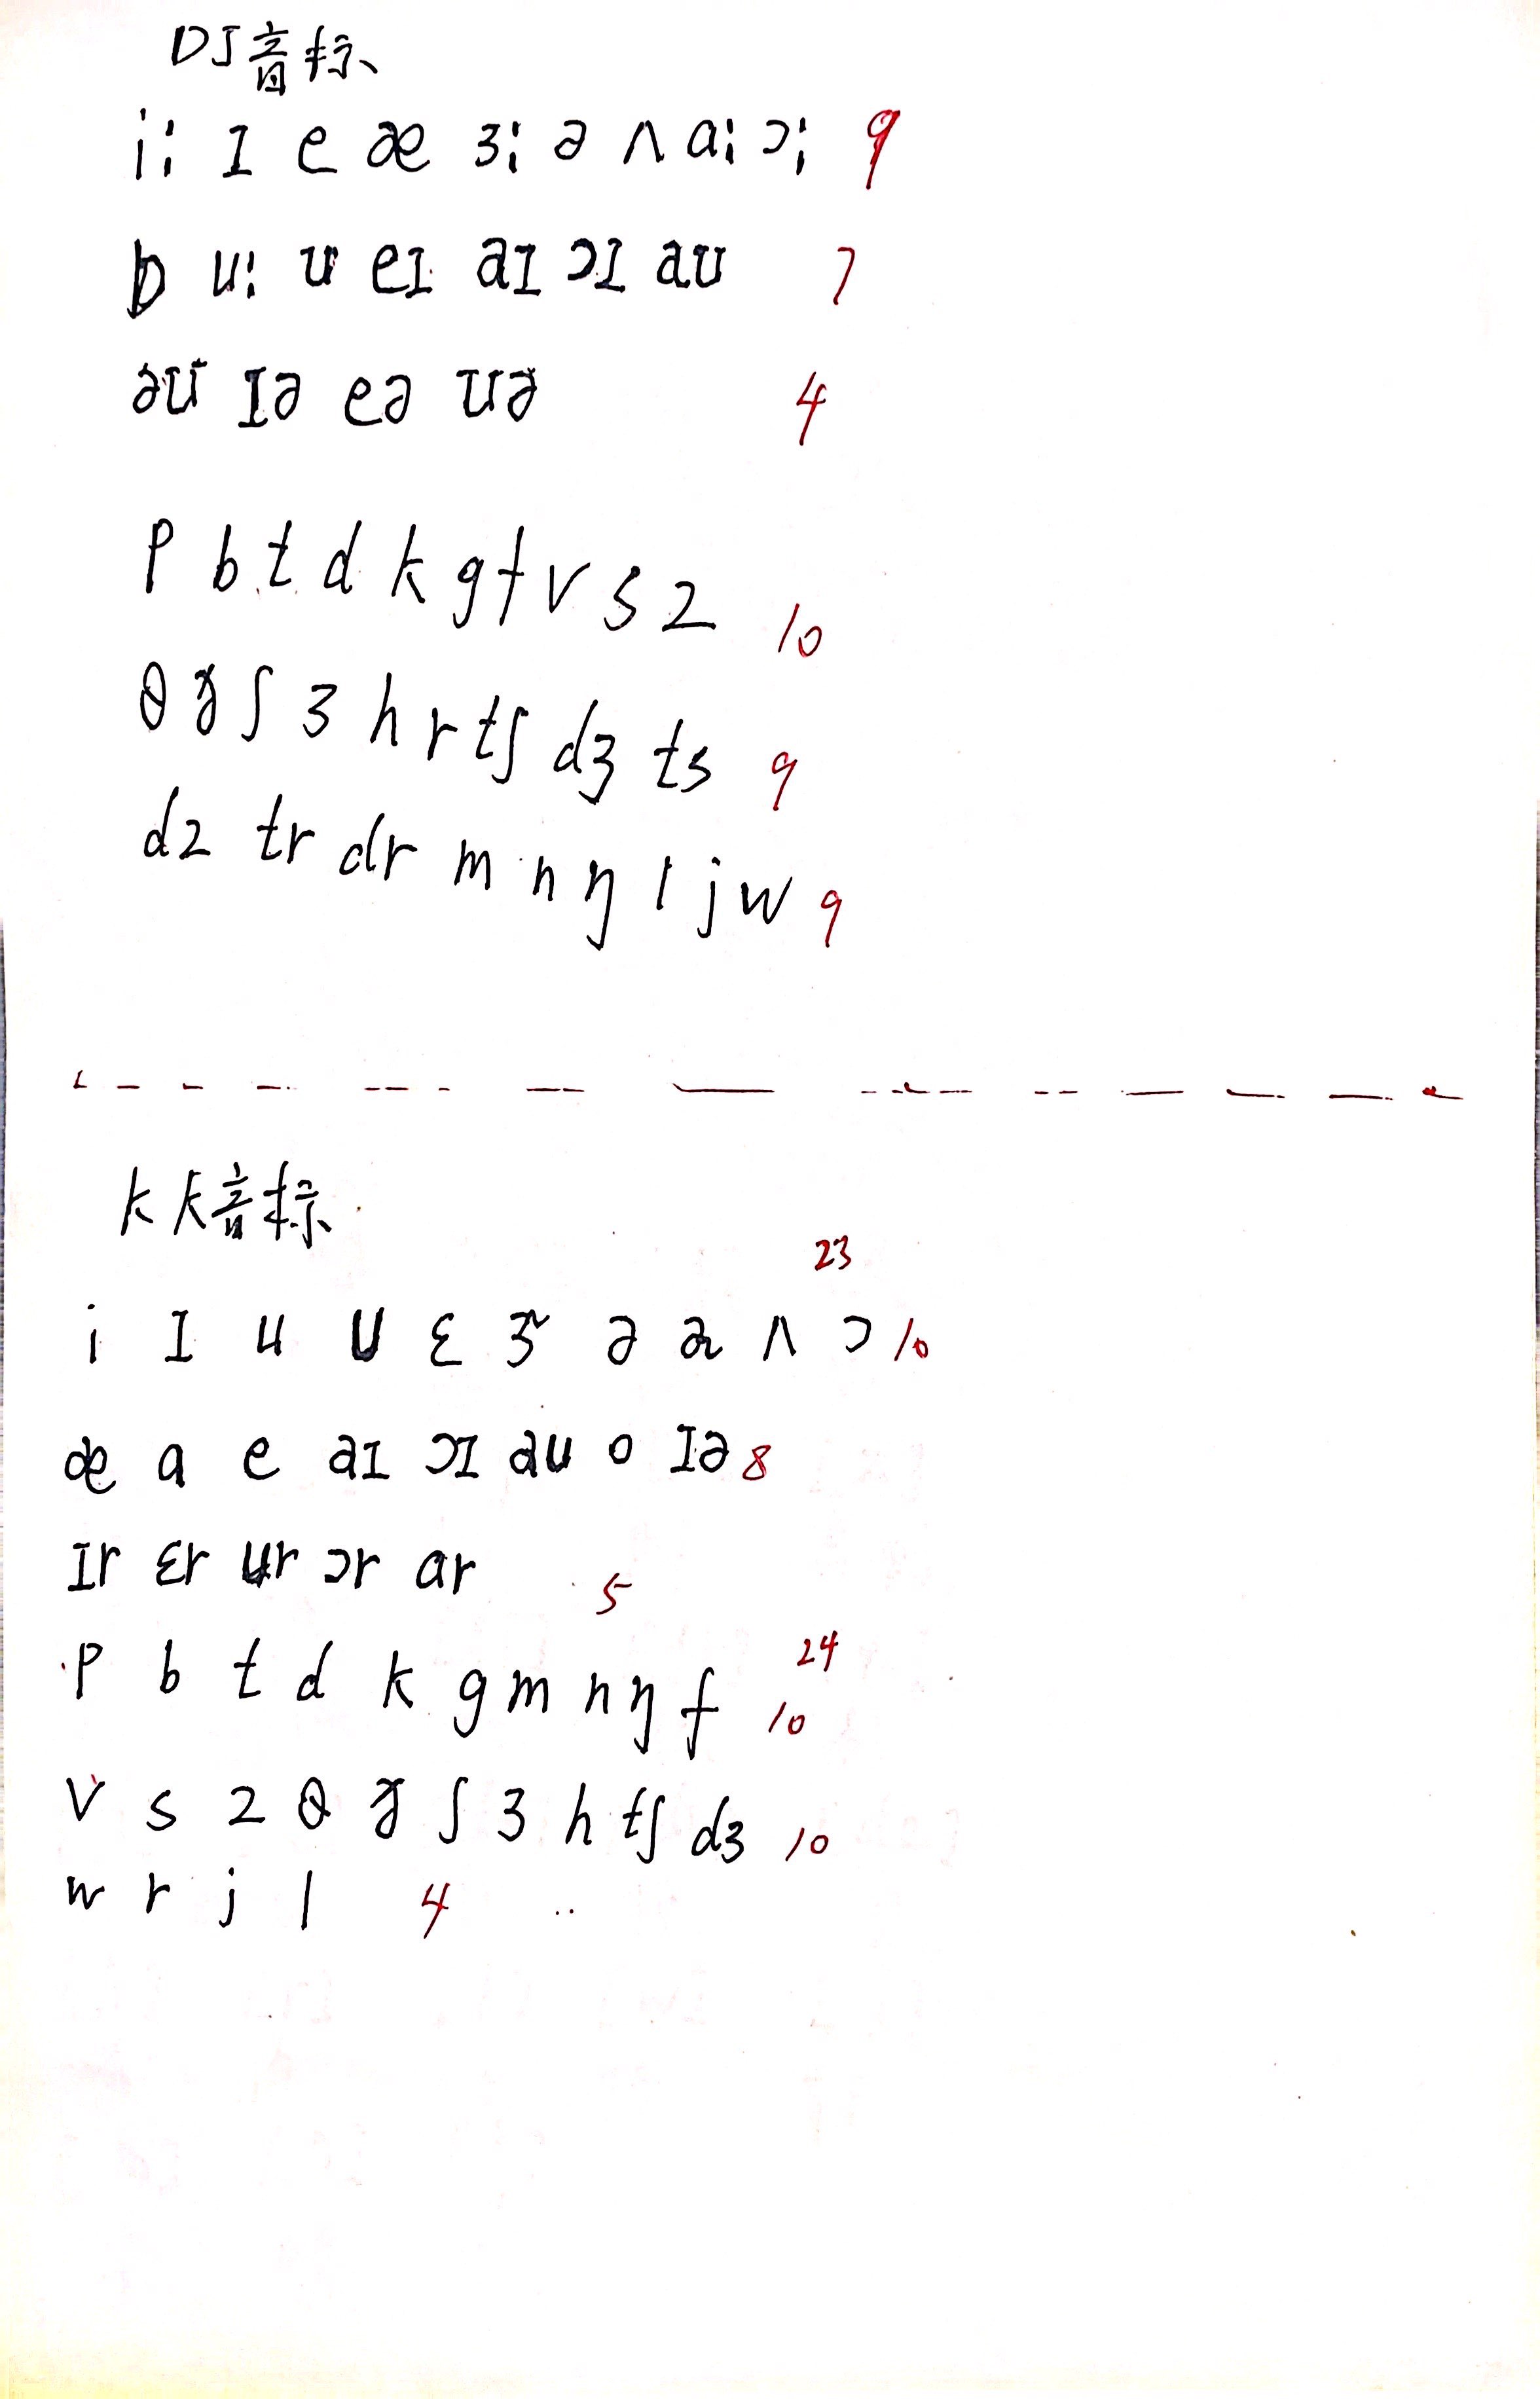 DJ音标
iː ɪ e æ ɜː ə ʌ ɑː ɔː 9
ɒ uː ʊ eɪ aɪ ɔɪ aʊ 7
əʊ ɪə eə ʊə 4
p b t d k g f v s z 10
θ ð ʃ ʒ h r tʃ dʒ ts 9
dz tr dr m n ŋ l j w 9
KK音标
23
i ɪ u ʊ ɛ ɝ ə ɚ ʌ ɔ 10
æ ɑ e aɪ ɔɪ aʊ o ɪə 8
ɪr ɛr ʊr ɔr ɑr 5
24
p b t d k g m n ŋ f 10
v s z θ ð ʃ ʒ h tʃ dʒ 10
w r j l 4